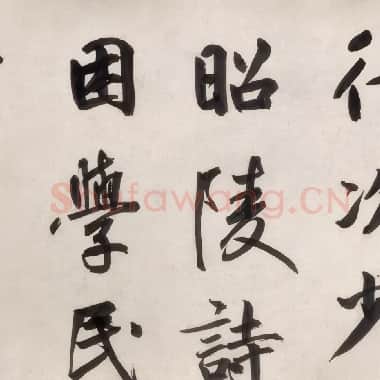 行次少
昭陵詩
困學民
Shufawang.CN